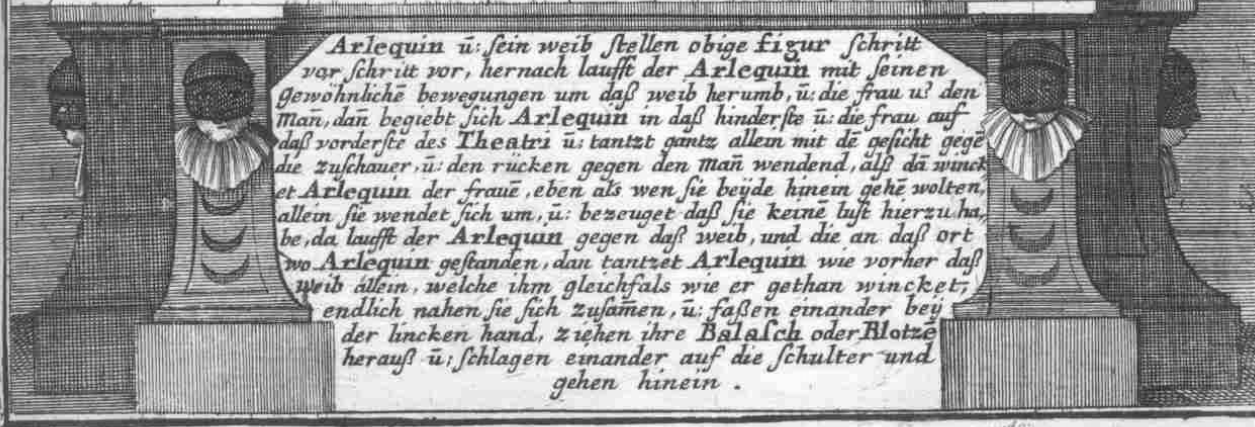 Arlequin ū: sein weib stellen obige figur schritt
vor schritt vor, hernach laufft der Arlequin mit seinen
gewöhnlichē bewegungen um daß weib herumb, ū: die frau ū? den
Mañ, dañ begiebt sich Arlequin in daß hinderste ū: die frau auf
daß vorderste des Theatri ū: tantzt gantz allein mit dē gesicht gegē
die zuschauer, ū: den rücken gegen den Mañ wendend, alß dā winck
et Arlequin der frauē, eben als wen sie beÿde hinein gehē wolten,
allein sie wendet sich um, ū: bezeuget daß sie keinē lust hierzu ha,
be, da laufft der Arlequin gegen daß weib, und die an daß ort
wo Arlequin gestanden, dan tantzet Arlequin wie vorher daß
Weib allein, welche ihm gleichfals wie er gethan wincket,
endlich nahen sie sich zusam̄en, ū: faßen einander beÿ
der lincken hand, ziehen ihre Balasch oder Blotzē
herauß ū: schlagen einander auf die schulter und
gehen hinein .